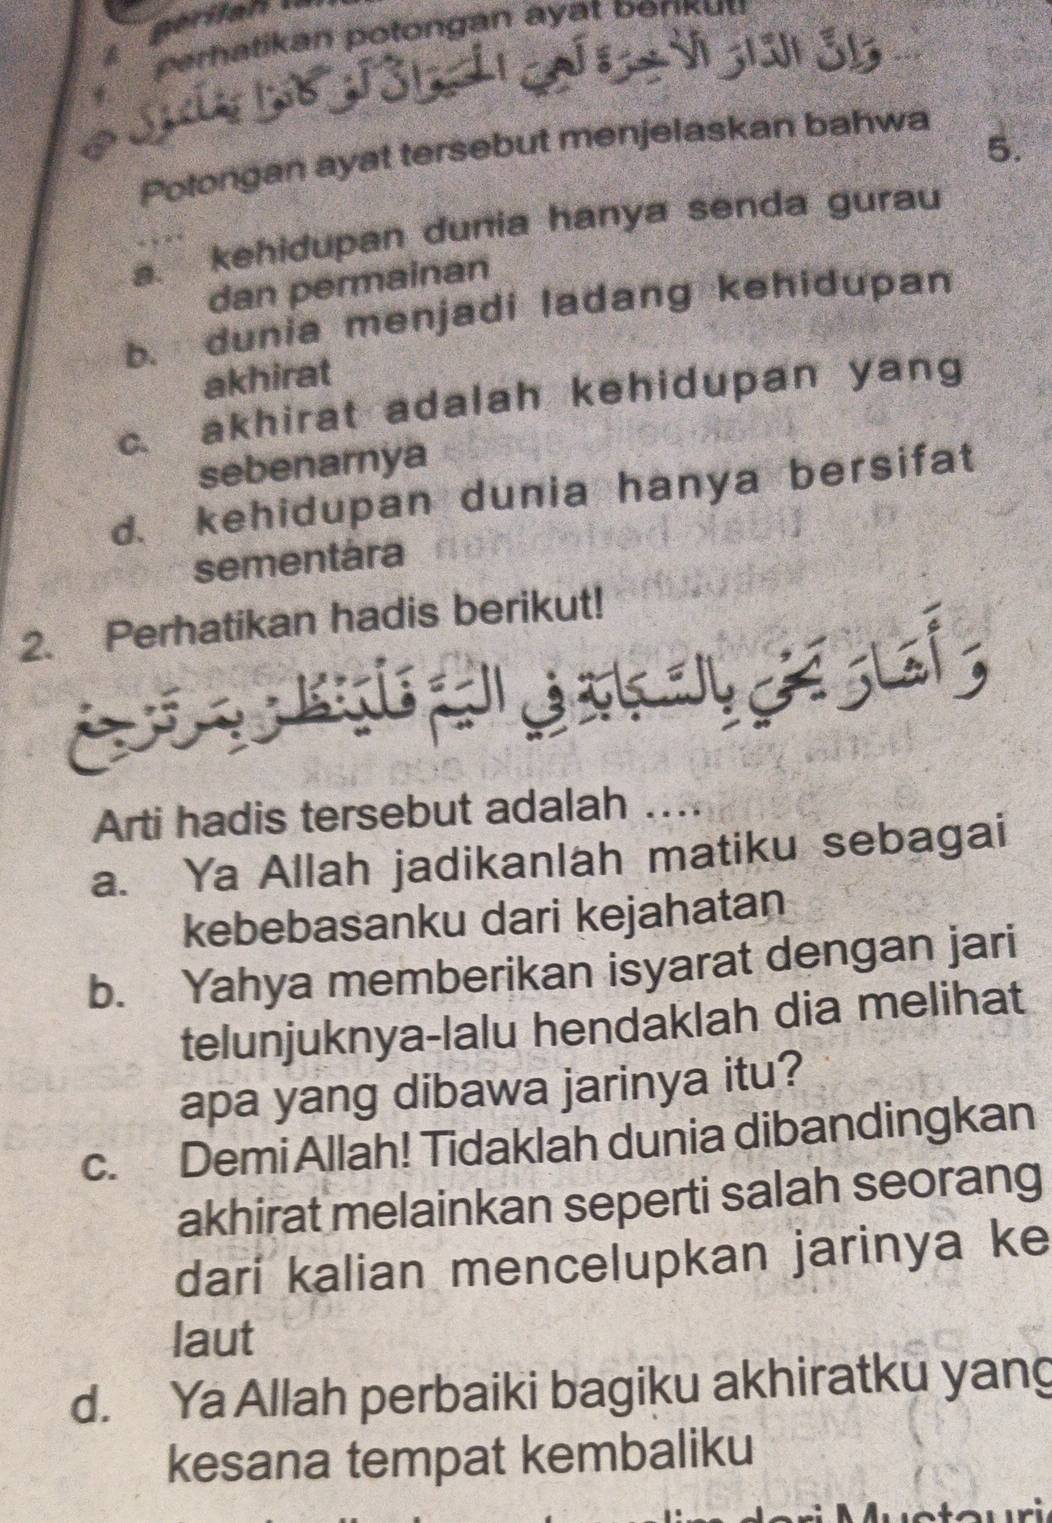 perhatikan potongan ayat berikut!
... وَإِنَّ الدَّارَ الْآخِرَةَ لَهِيَ الْحَيَوَانُ لَوْ كَانُوا يَعْلَمُونَ
Potongan ayat tersebut menjelaskan bahwa
....
5.
a. kehidupan dunia hanya senda gurau
dan permainan
b. dunia menjadi ladang kehidupan
akhirat
c. akhirat adalah kehidupan yang
sebenarnya
d. kehidupan dunia hanya bersifat
sementara
2. Perhatikan hadis berikut!
وَ أَشَارَ يَحْيَ بِالسَّبَّابَةِ فِي الْيَمِّ فَلْيَنْظُرْ بِمَ تَرْجِعُ
Arti hadis tersebut adalah ....
a. Ya Allah jadikanlah matiku sebagai
kebebasanku dari kejahatan
b. Yahya memberikan isyarat dengan jari
telunjuknya-lalu hendaklah dia melihat
apa yang dibawa jarinya itu?
c. Demi Allah! Tidaklah dunia dibandingkan
akhirat melainkan seperti salah seorang
dari kalian mencelupkan jarinya ke
laut
d. Ya Allah perbaiki bagiku akhiratku yang
kesana tempat kembaliku
dari